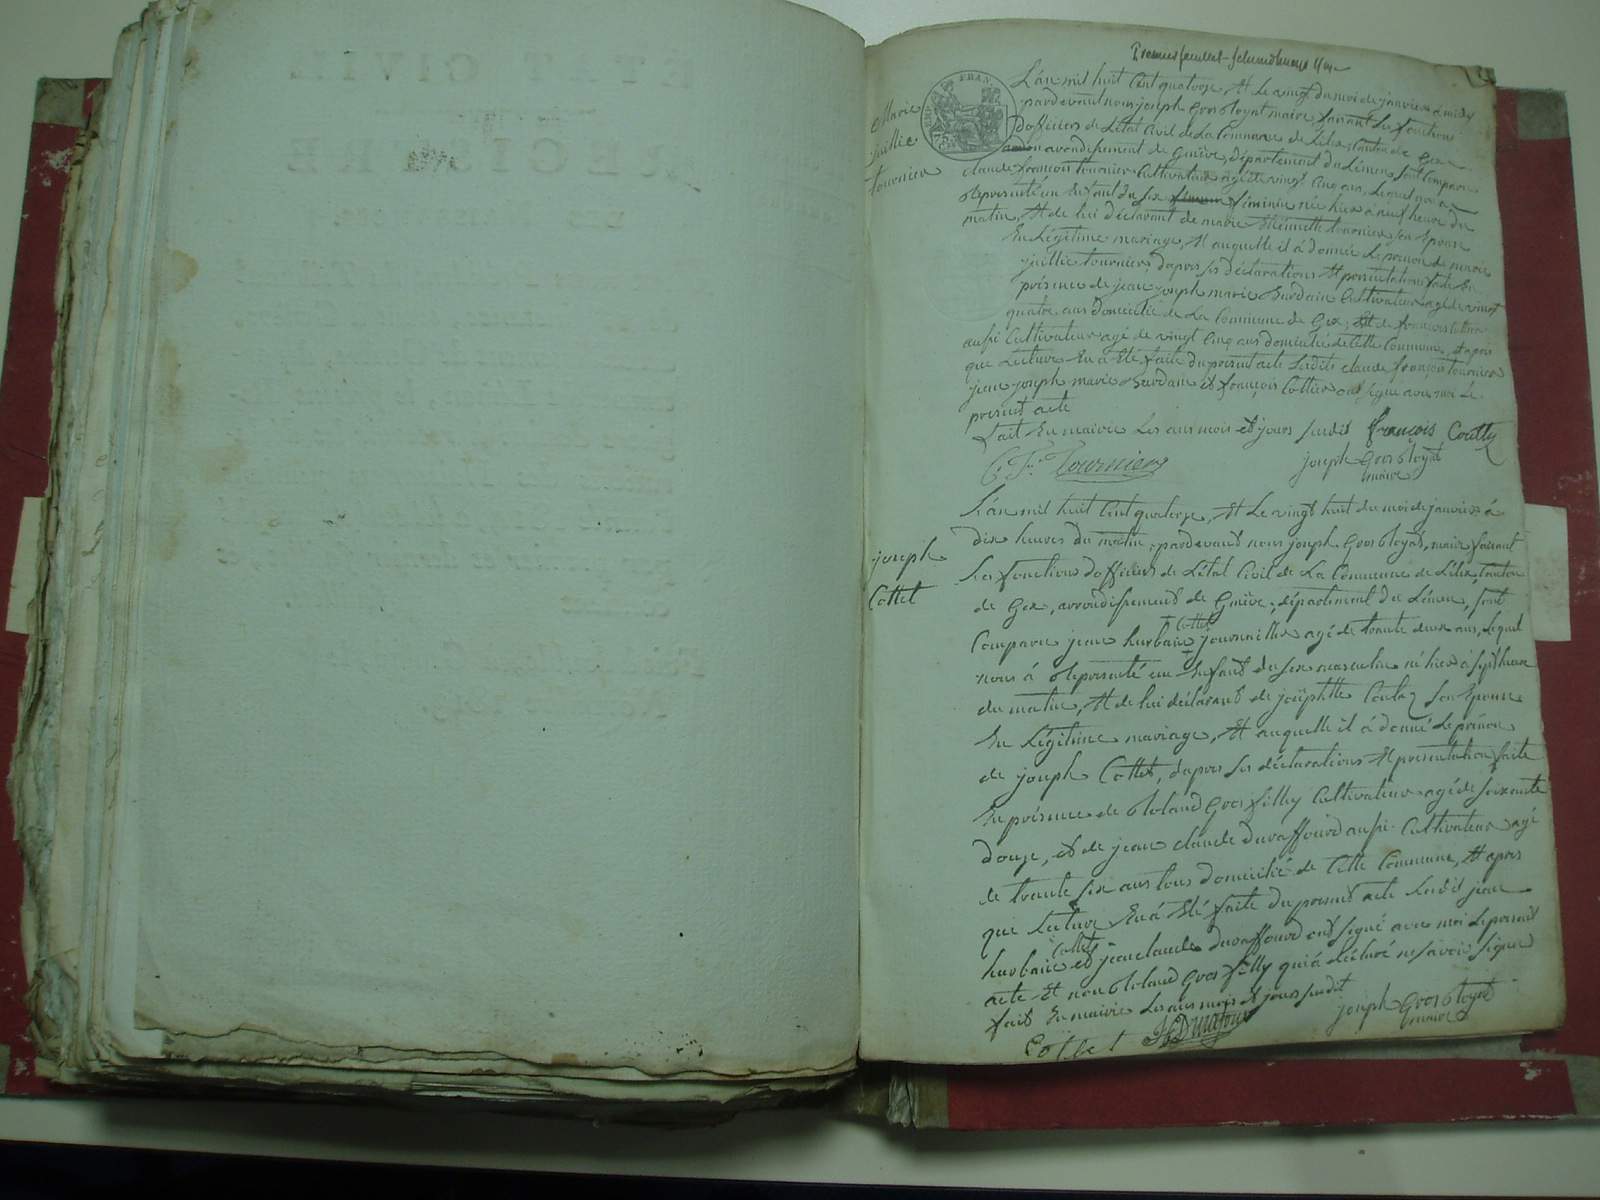 Marie
jullie
tournier
L'an mil huit Cent quatorze, Et Le vingt du moi de janvier à midy
pardevant nous joseph Gros Royat maire faisant Les fonctions
d'officiers de L'état Civil de La Commune de Lélex, Canton de Gex
arrondissement de Genève, département du Léman, sont Comparu
claude françois tournier Cultivateur agé de vingt Cinq ans, Lequel nous à
Représenté un Enfant du sex féminin née hier à neuf heure du
matin, Et de lui déclarant de marie Etiennette tournier son Epouse
En Légitime mariage, Et auquelle il à donnée Le prénom de marie
jullie tournier, dapres ses déclarations Et présentation faite En
présence de jean joseph marie Burdain Cultivateur agé de vingt
quatre ans domicilié de La Commune de Gex, Et de françois Cottier
aussi Cultivateur agé de vingt Cinq ans domicilié de Cette Commune, Et après
que Lecture En à Eté faite du présent acte Ledits claude françois tournier
jean joseph marie Burdain et françois Cottier ont signé avec moi Le
présent acte
fait En mairie Les ans mois et jours susdit françois
C. F. Tournier joseph Gros Royat
maire
joseph
Cottet
L'an mil huit Cent quatorze, Et Le vingt huit du moi de janvier à
dix heures du matin, pardevant nous joseph Gros Royat, maire faisant
Les fonctions d'officiers de L'état Civil de La Commune de Lélex, Canton
de Gex, arrondissement de Genève, département du Léman, sont
Cottet
Comparu jean hurbain journaillier agé de trante deux ans, Lequel
nous à Représenté un Enfant du sex masculin né hier à sept heure
du matin, Et de lui déclarant de josephtte son Epouse
En Légitime mariage, Et auquelle il à donné Le prénom
de joseph Cottet, dapres ses déclarations Et présentation faite
En présence de Roland Gros filley Cultivateur agé de soixante
douze, et de jean claude Duraffourd aussi Cultivateur agé
de trante six ans tous domicilié de Cette Commune, Et après
que Lecture En à Eté faite du présent acte Ledit jean
Cottet
hurbain et jean claude Duraffourd ont signé avec moi Le présent
acte Et non Roland Gros filley qui à déclaré ne savoir signer
fait En mairie Les ans mois et jours susdit joseph Gros Royat
maire
Cottet